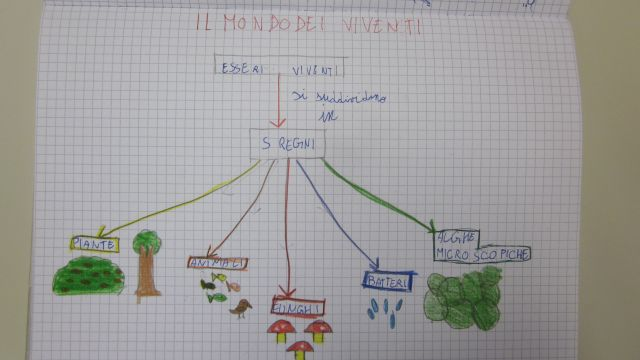 IL MONDO DEI VIVENTI
ESSERI VIVENTI
si suddividono
in
5 REGNI
PIANTE
ANIMALI
FUNGHI
BATTERI
ALGHE
MICROSCOPICHE